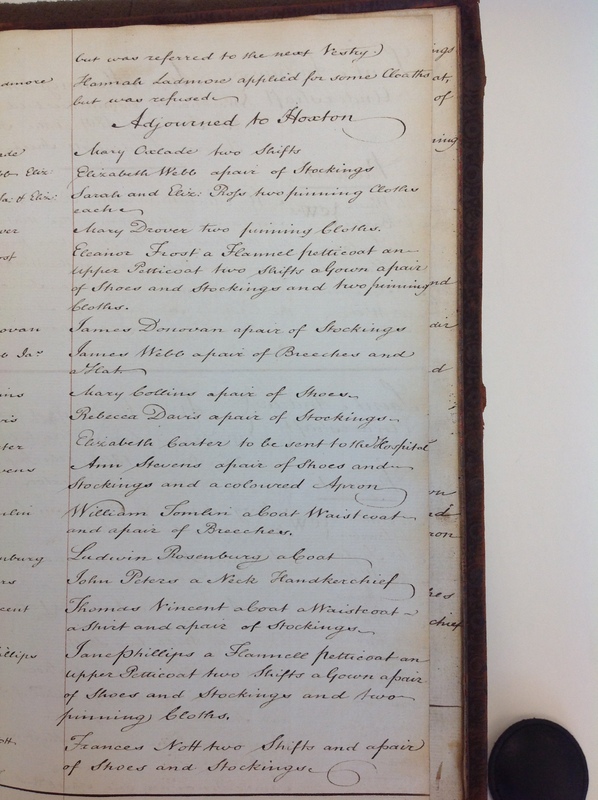 but was referred to the next Vestry)
Hannah Ladmore applied for some Cloaths
but was refused
Adjourned to Hoxton
Mary Oxlade two Shifts
Elizabeth Webb apair of Stockings
Sarah and Eliz: Ross two pinning Cloths
each
Mary Drover two pinning Cloths.
Eleanor Frost a Flannel petticoat an
upper Petticoat two Shifts a Gown apair
of Shoes and Stockings and two pinning
Cloths.
James Donovan apair of Stockings
James Webb apair of Breeches and
a Hat
Mary Collins apair of Shoes
Rebecca Davis apair of Stockings
Elizabeth Carter to be sent to the Hospital
Ann Stevens apair of Shoes and
Stockings and a coloured Apron
William Tomlin a Coat Waistcoat
and apair of Breeches.
Ludwin Rosenburg a Coat
John Peters a Neck Handkerchief
Thomas Vincent a Coat a Waistcoat
a Shirt and apair of Stockings
Jane Phillips a Flannell petticoat an
upper Petticoat two Shifts a Gown apair
of Shoes and Stockings and two
pinning Cloths.
Frances Nott two Shifts and apair
of Shoes and Stockings